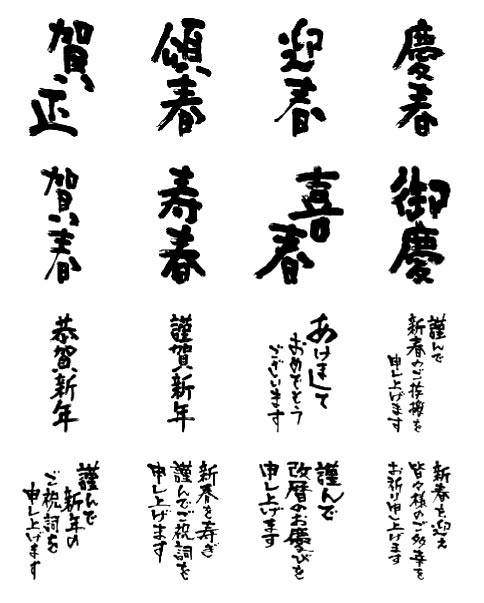 慶春
迎春
頌春
賀正
御慶
喜春
寿春
賀春
謹んで
新春のご挨拶を
申し上げます
あけまして
おめでとう
ございます
謹賀新年
恭賀新年
新春を迎え
皆々様のご多幸を
お祈り申し上げます
謹んで
改暦のお慶びを
申し上げます
新春を寿ぎ
謹んでご祝詞を
申し上げます
謹んで
新年の
ご祝詞を
申し上げます